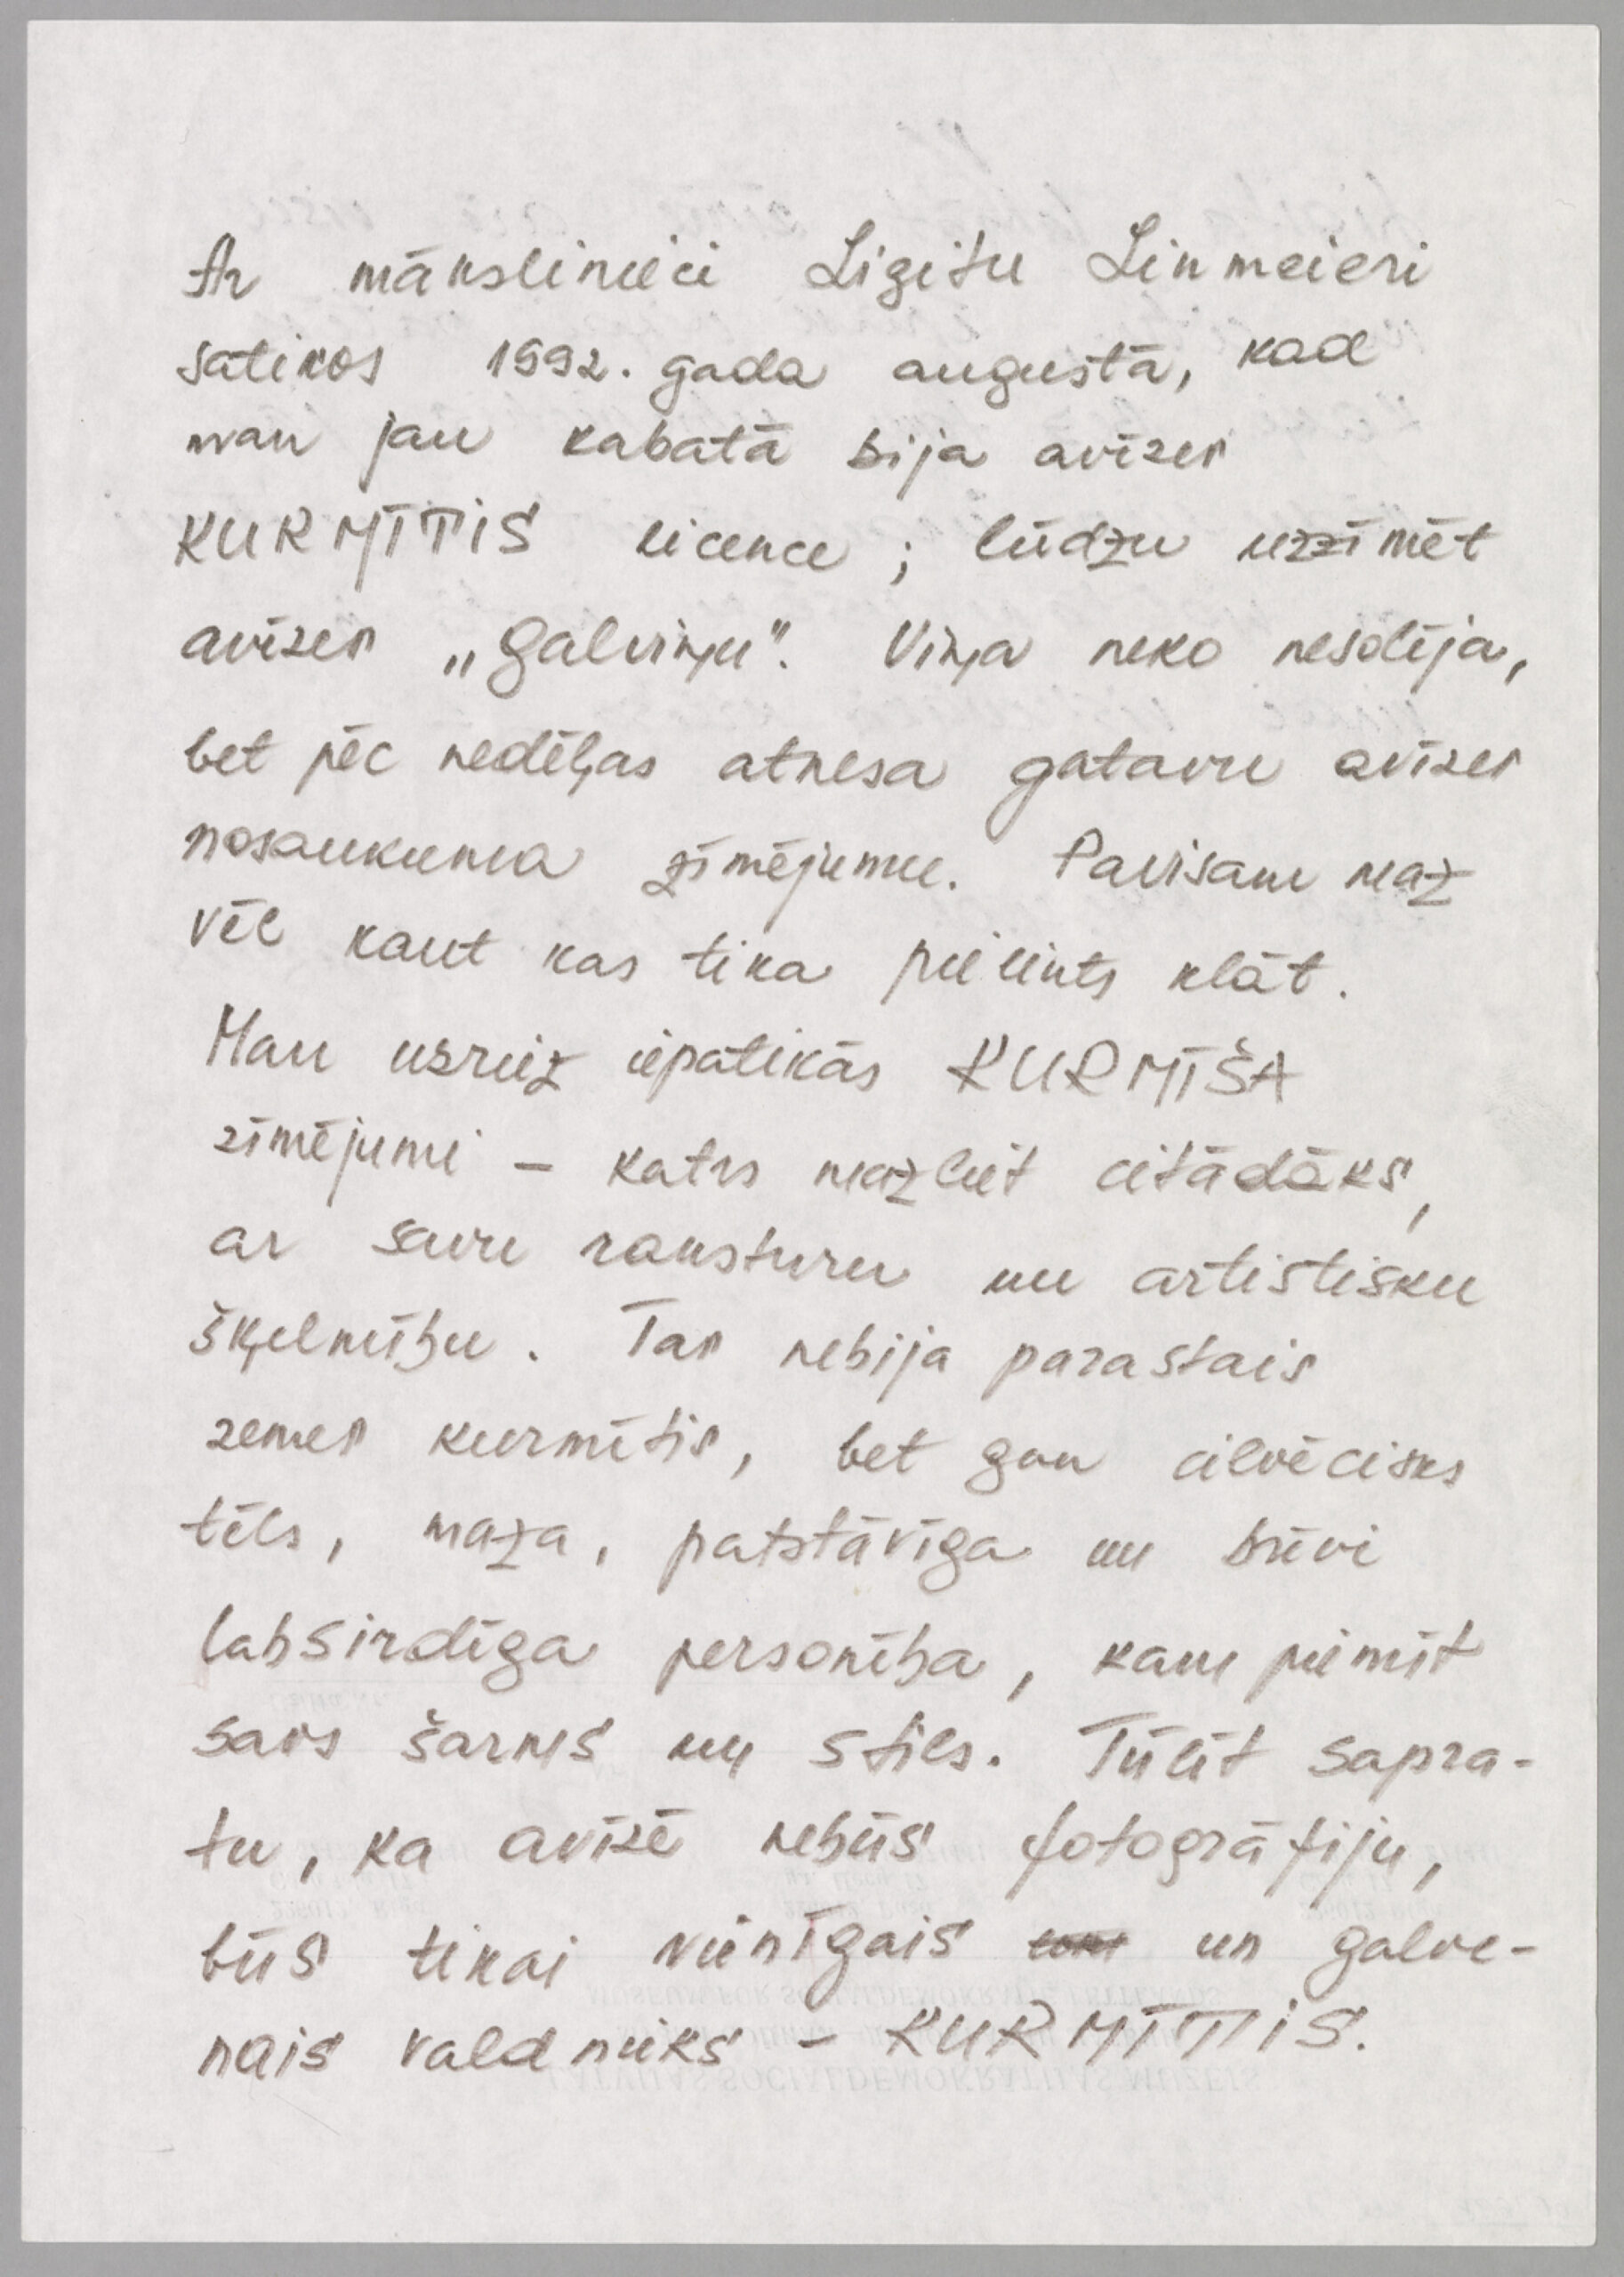 Ar mākslinieci Ligitu Linmeieri
satikos 1992. gada augustā, kad
man jau kabatā bija avīzes
KURMĪTIS licence; lūdzu uzzīmēt
avīzes „galviņu". Viņa neko nesolīja,
bet pēc nedēļas atnesa gatavu avīzes
nosaukuma zīmējumu. Pavisam maz
vēl kaut kas tika pielikts klāt.
Man uzreiz iepatikās KURMĪŠA
zīmējumi – katrs mazliet citādāks,
ar savu raksturu un artistisku
šķelmību. Tas nebija parastais
zemes kurmītis, bet gan cilvēcisks
tēls, maza, patstāvīga un brīvi
labsirdīga personība, kam piemīt
savs šarms un stils. Tūlīt sapra-
tu, ka avīzē nebūs fotogrāfiju,
būs tikai vienīgais un galve-
nais valdnieks – KURMĪTIS.